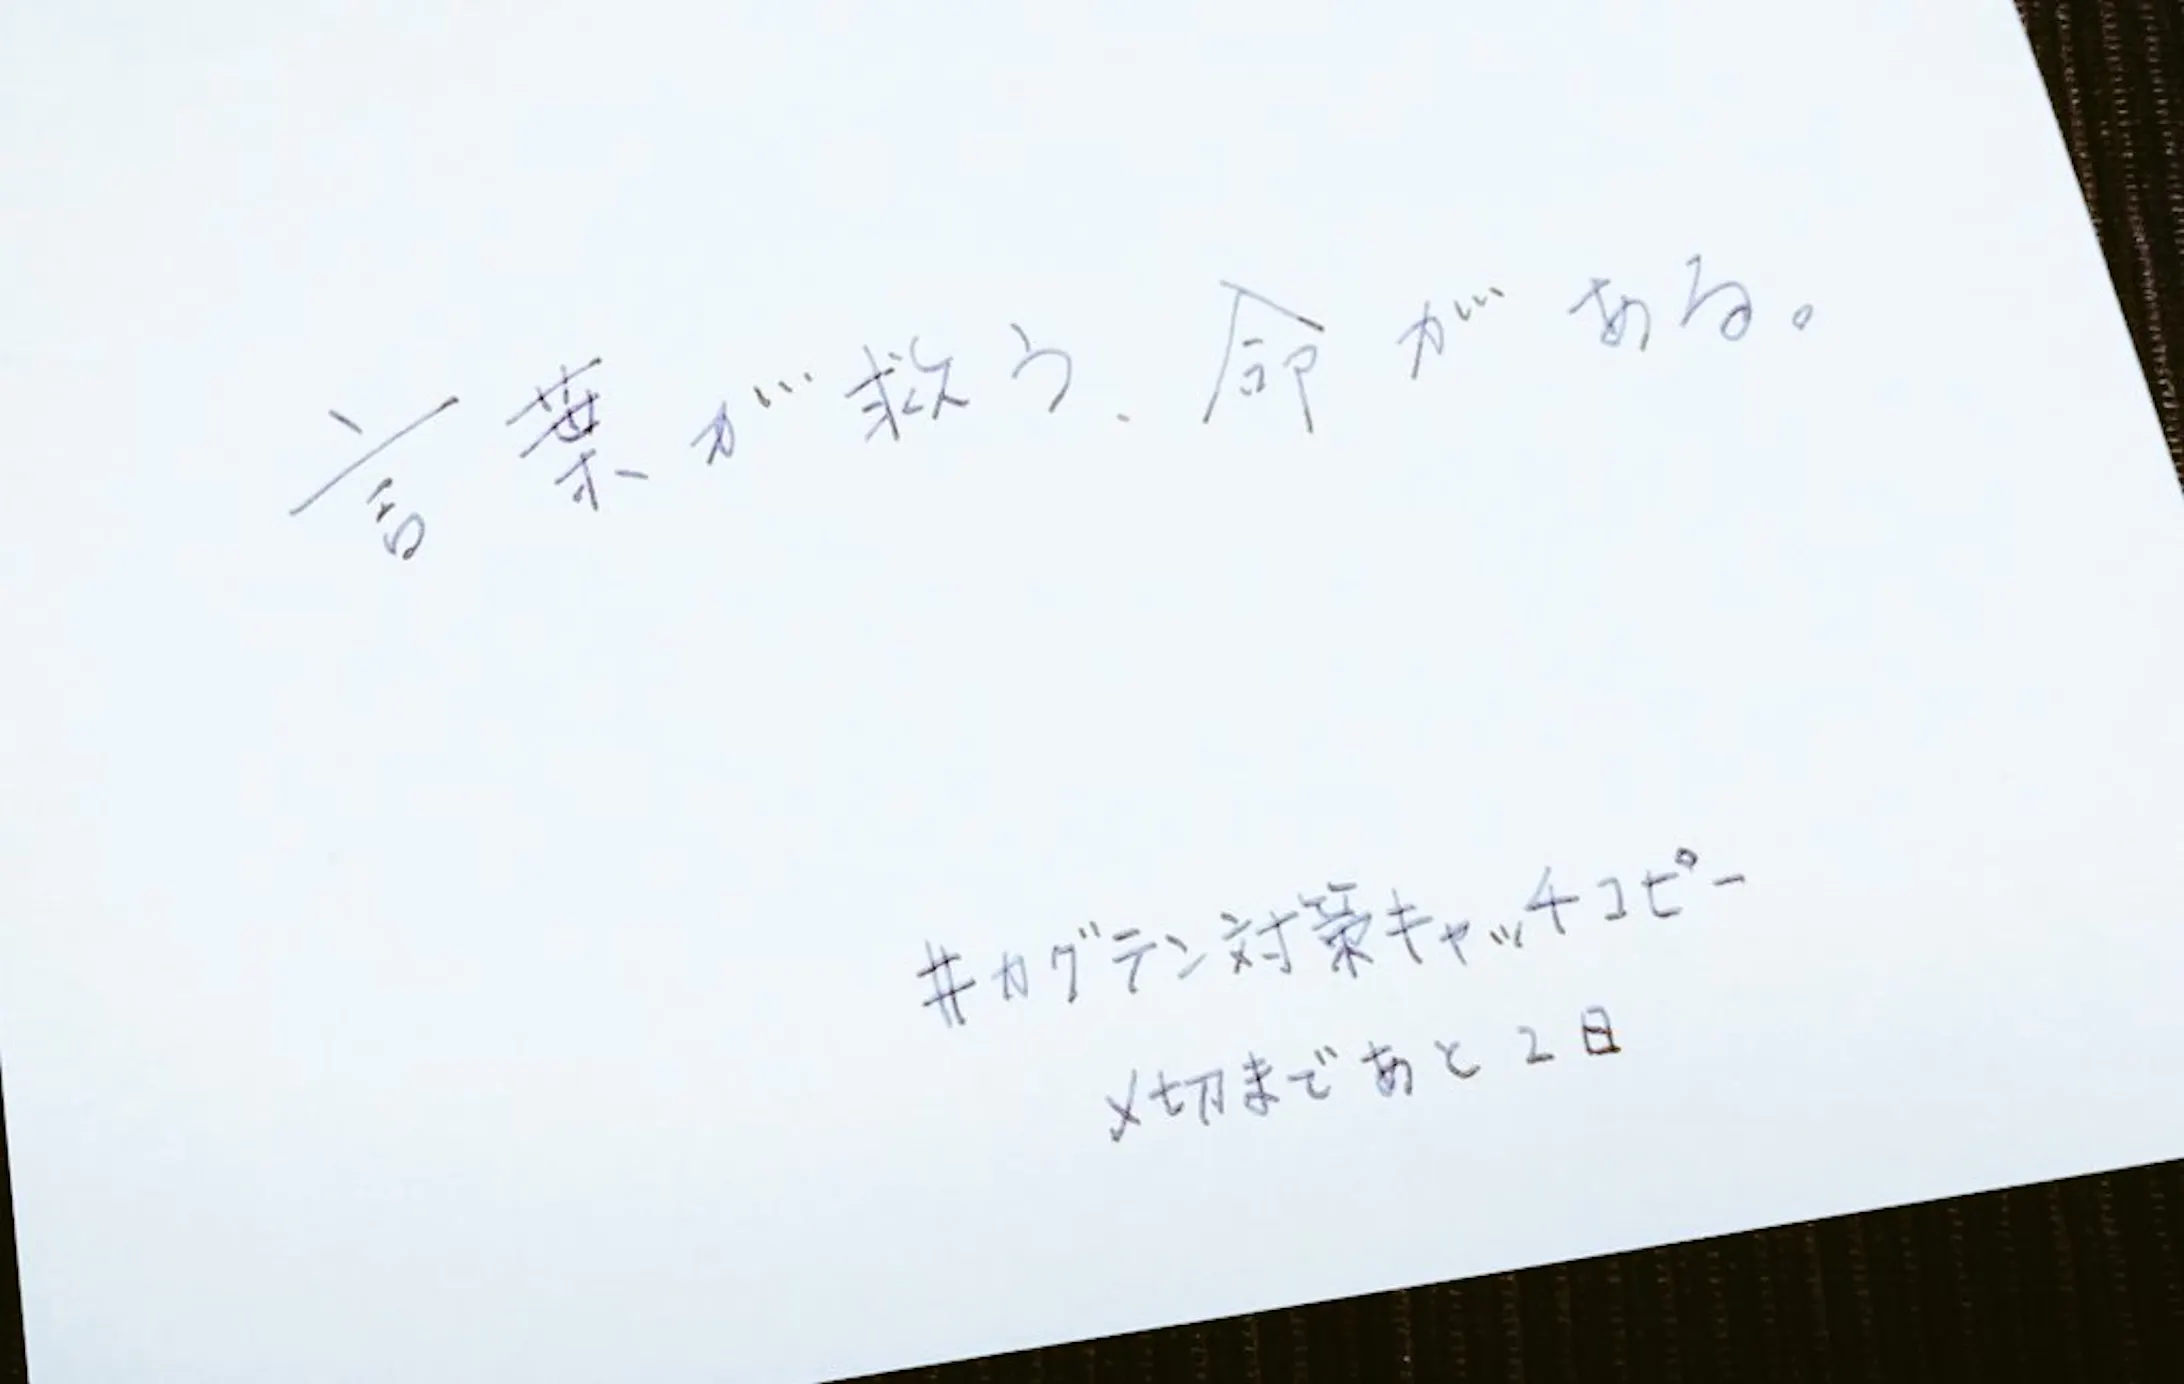 言葉が救う、命がある。
#カグテン対策キャッチコピー
〆切まであと2日